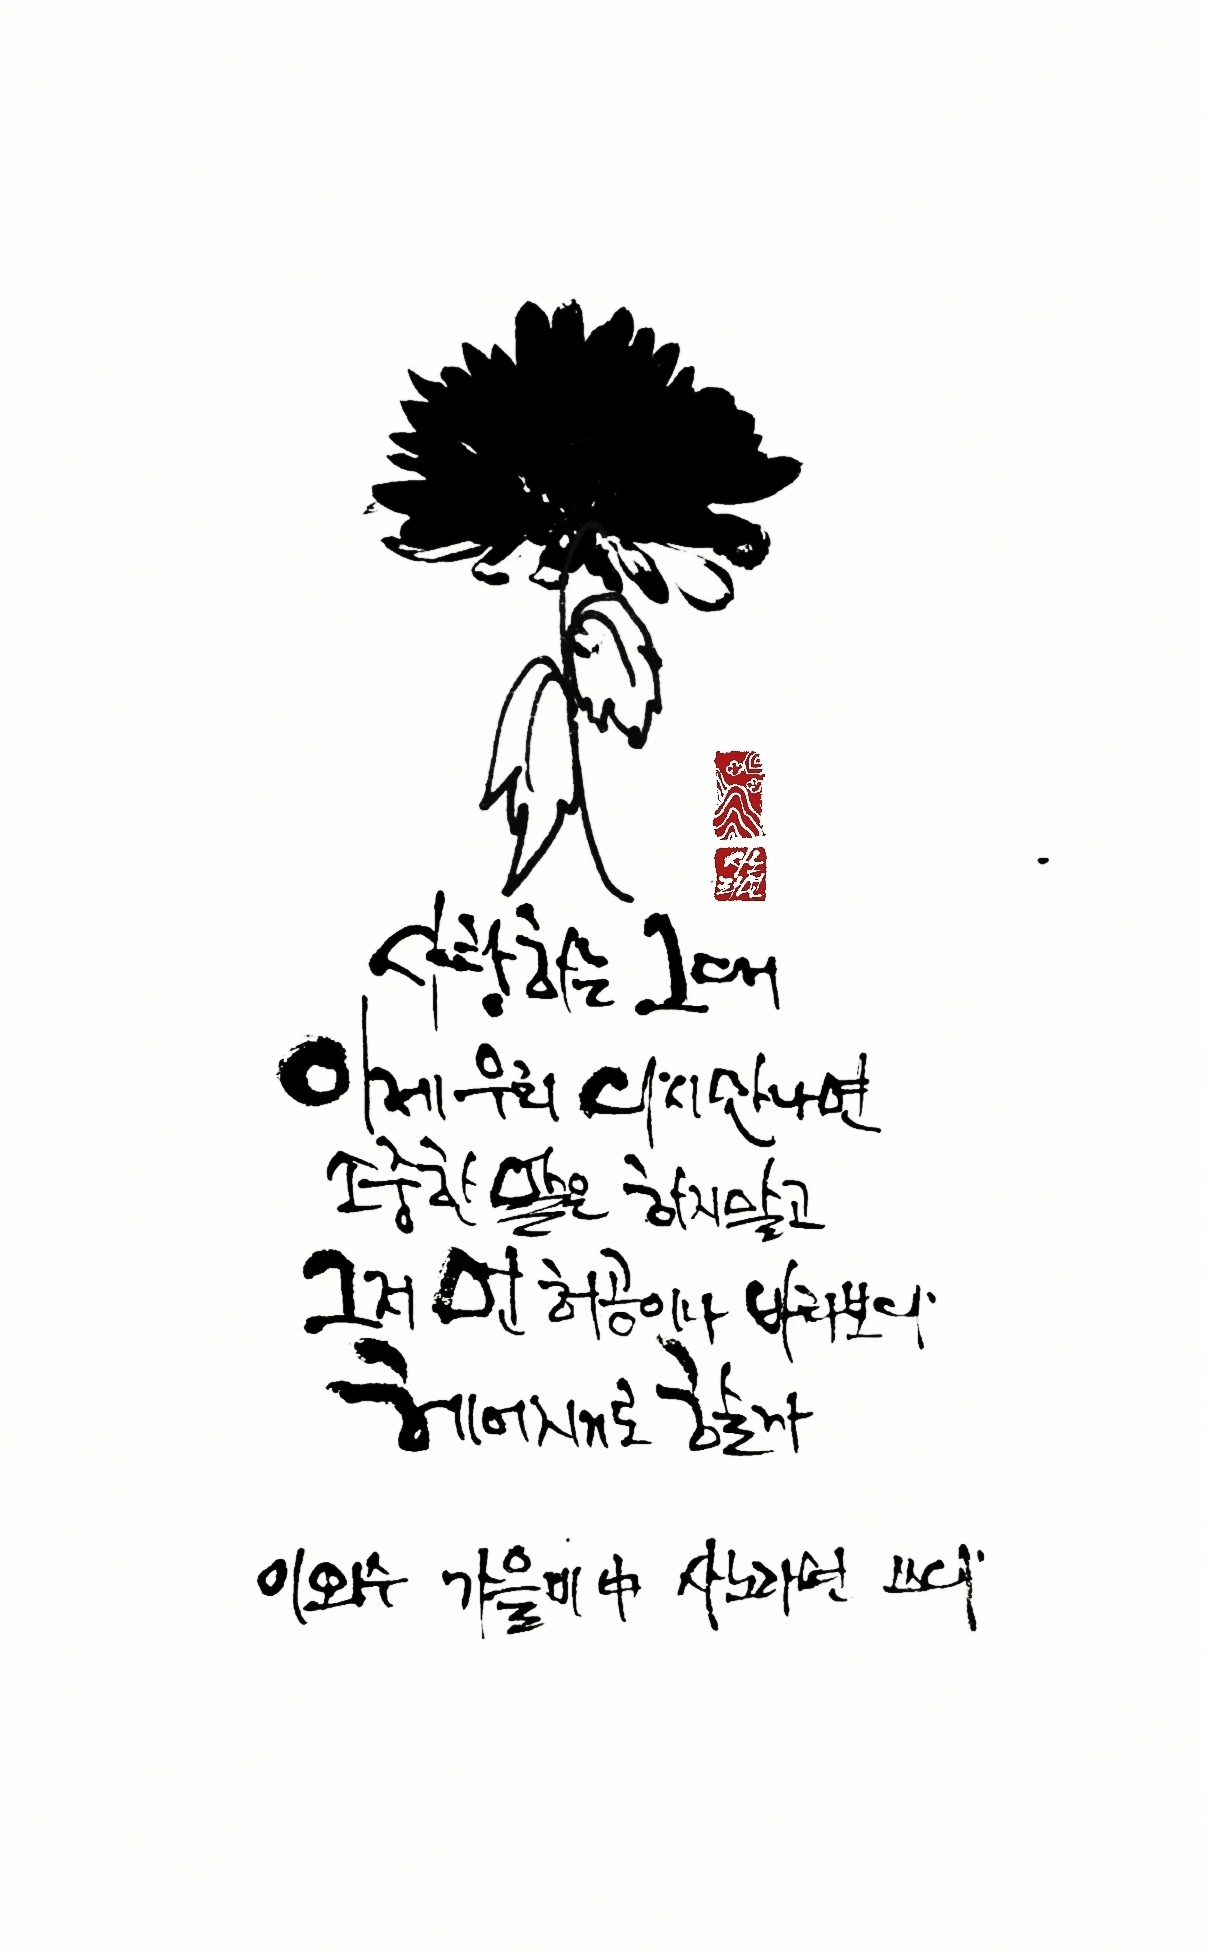 사랑하는 그대
이제 우리 다시 만나면
소중한 말은 하지 말고
그저 먼 허공이나 바라보다
헤어지기로 할까
이외수 가을비 中 사노라면 쓰다